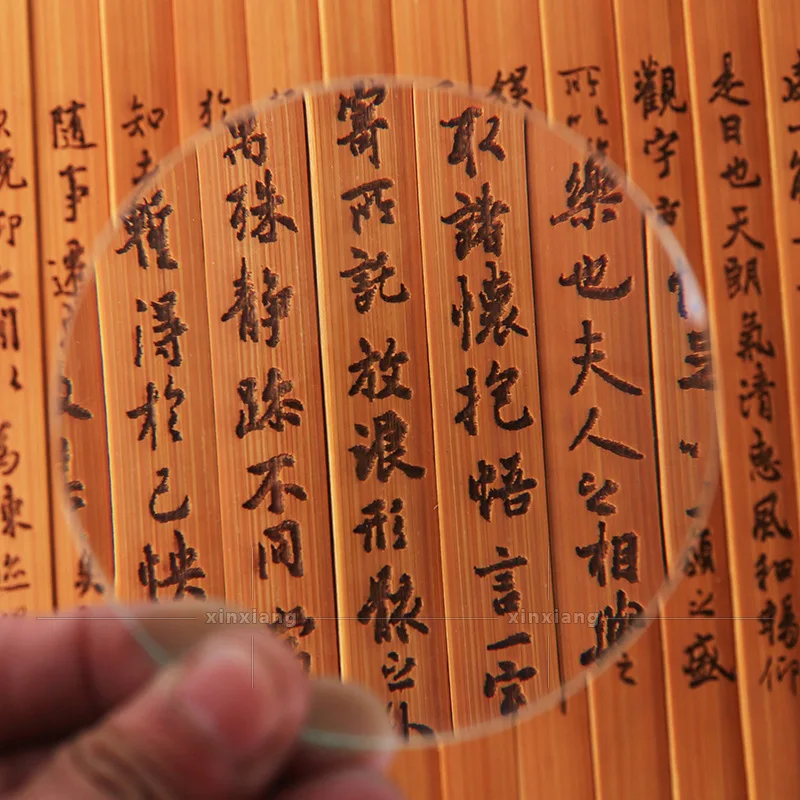 是日也天朗氣清惠風和暢仰
觀宇類之盛
所以樂也夫人之相與
取諸懷抱悟言一室
寄所託放浪形骸之外
萬殊静躁不同當
知暫得於己快
隨事遷
俛仰之間以為陳迹
xinxiang xinxiang